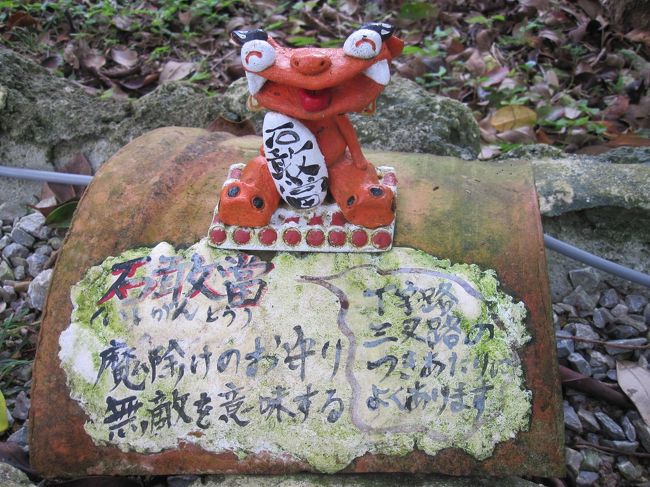 石敢當
石敢當
いしがんとう
魔除けのお守り
無敵を意味する
丁字路
三叉路の
つきあたりに
よくあります